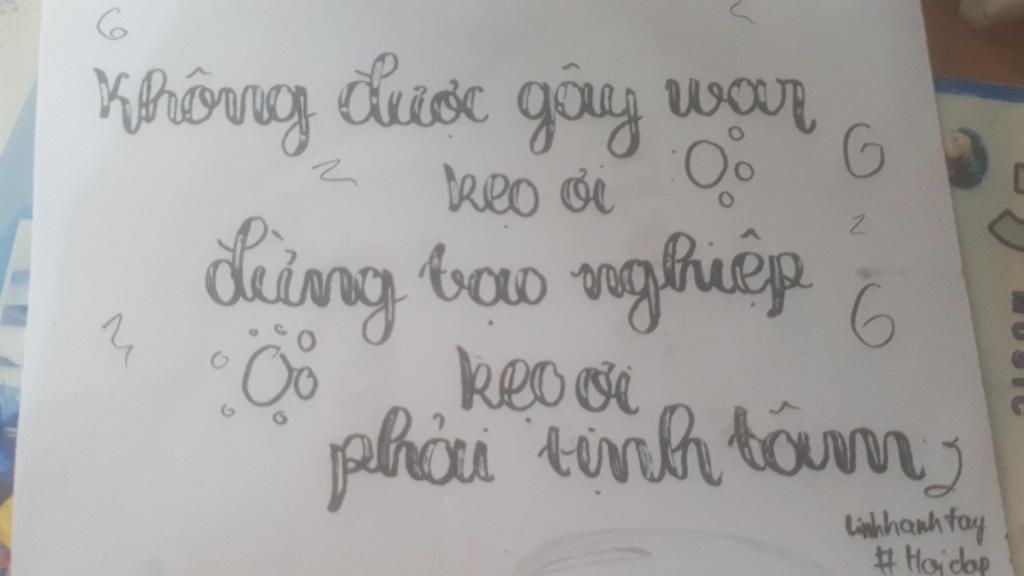 Không được gây war
kẹo ơi
đừng tạo nghiệp
kẹo ơi
phải tịnh tâm,
linhhanhtay
#Hoidap
MUSIC